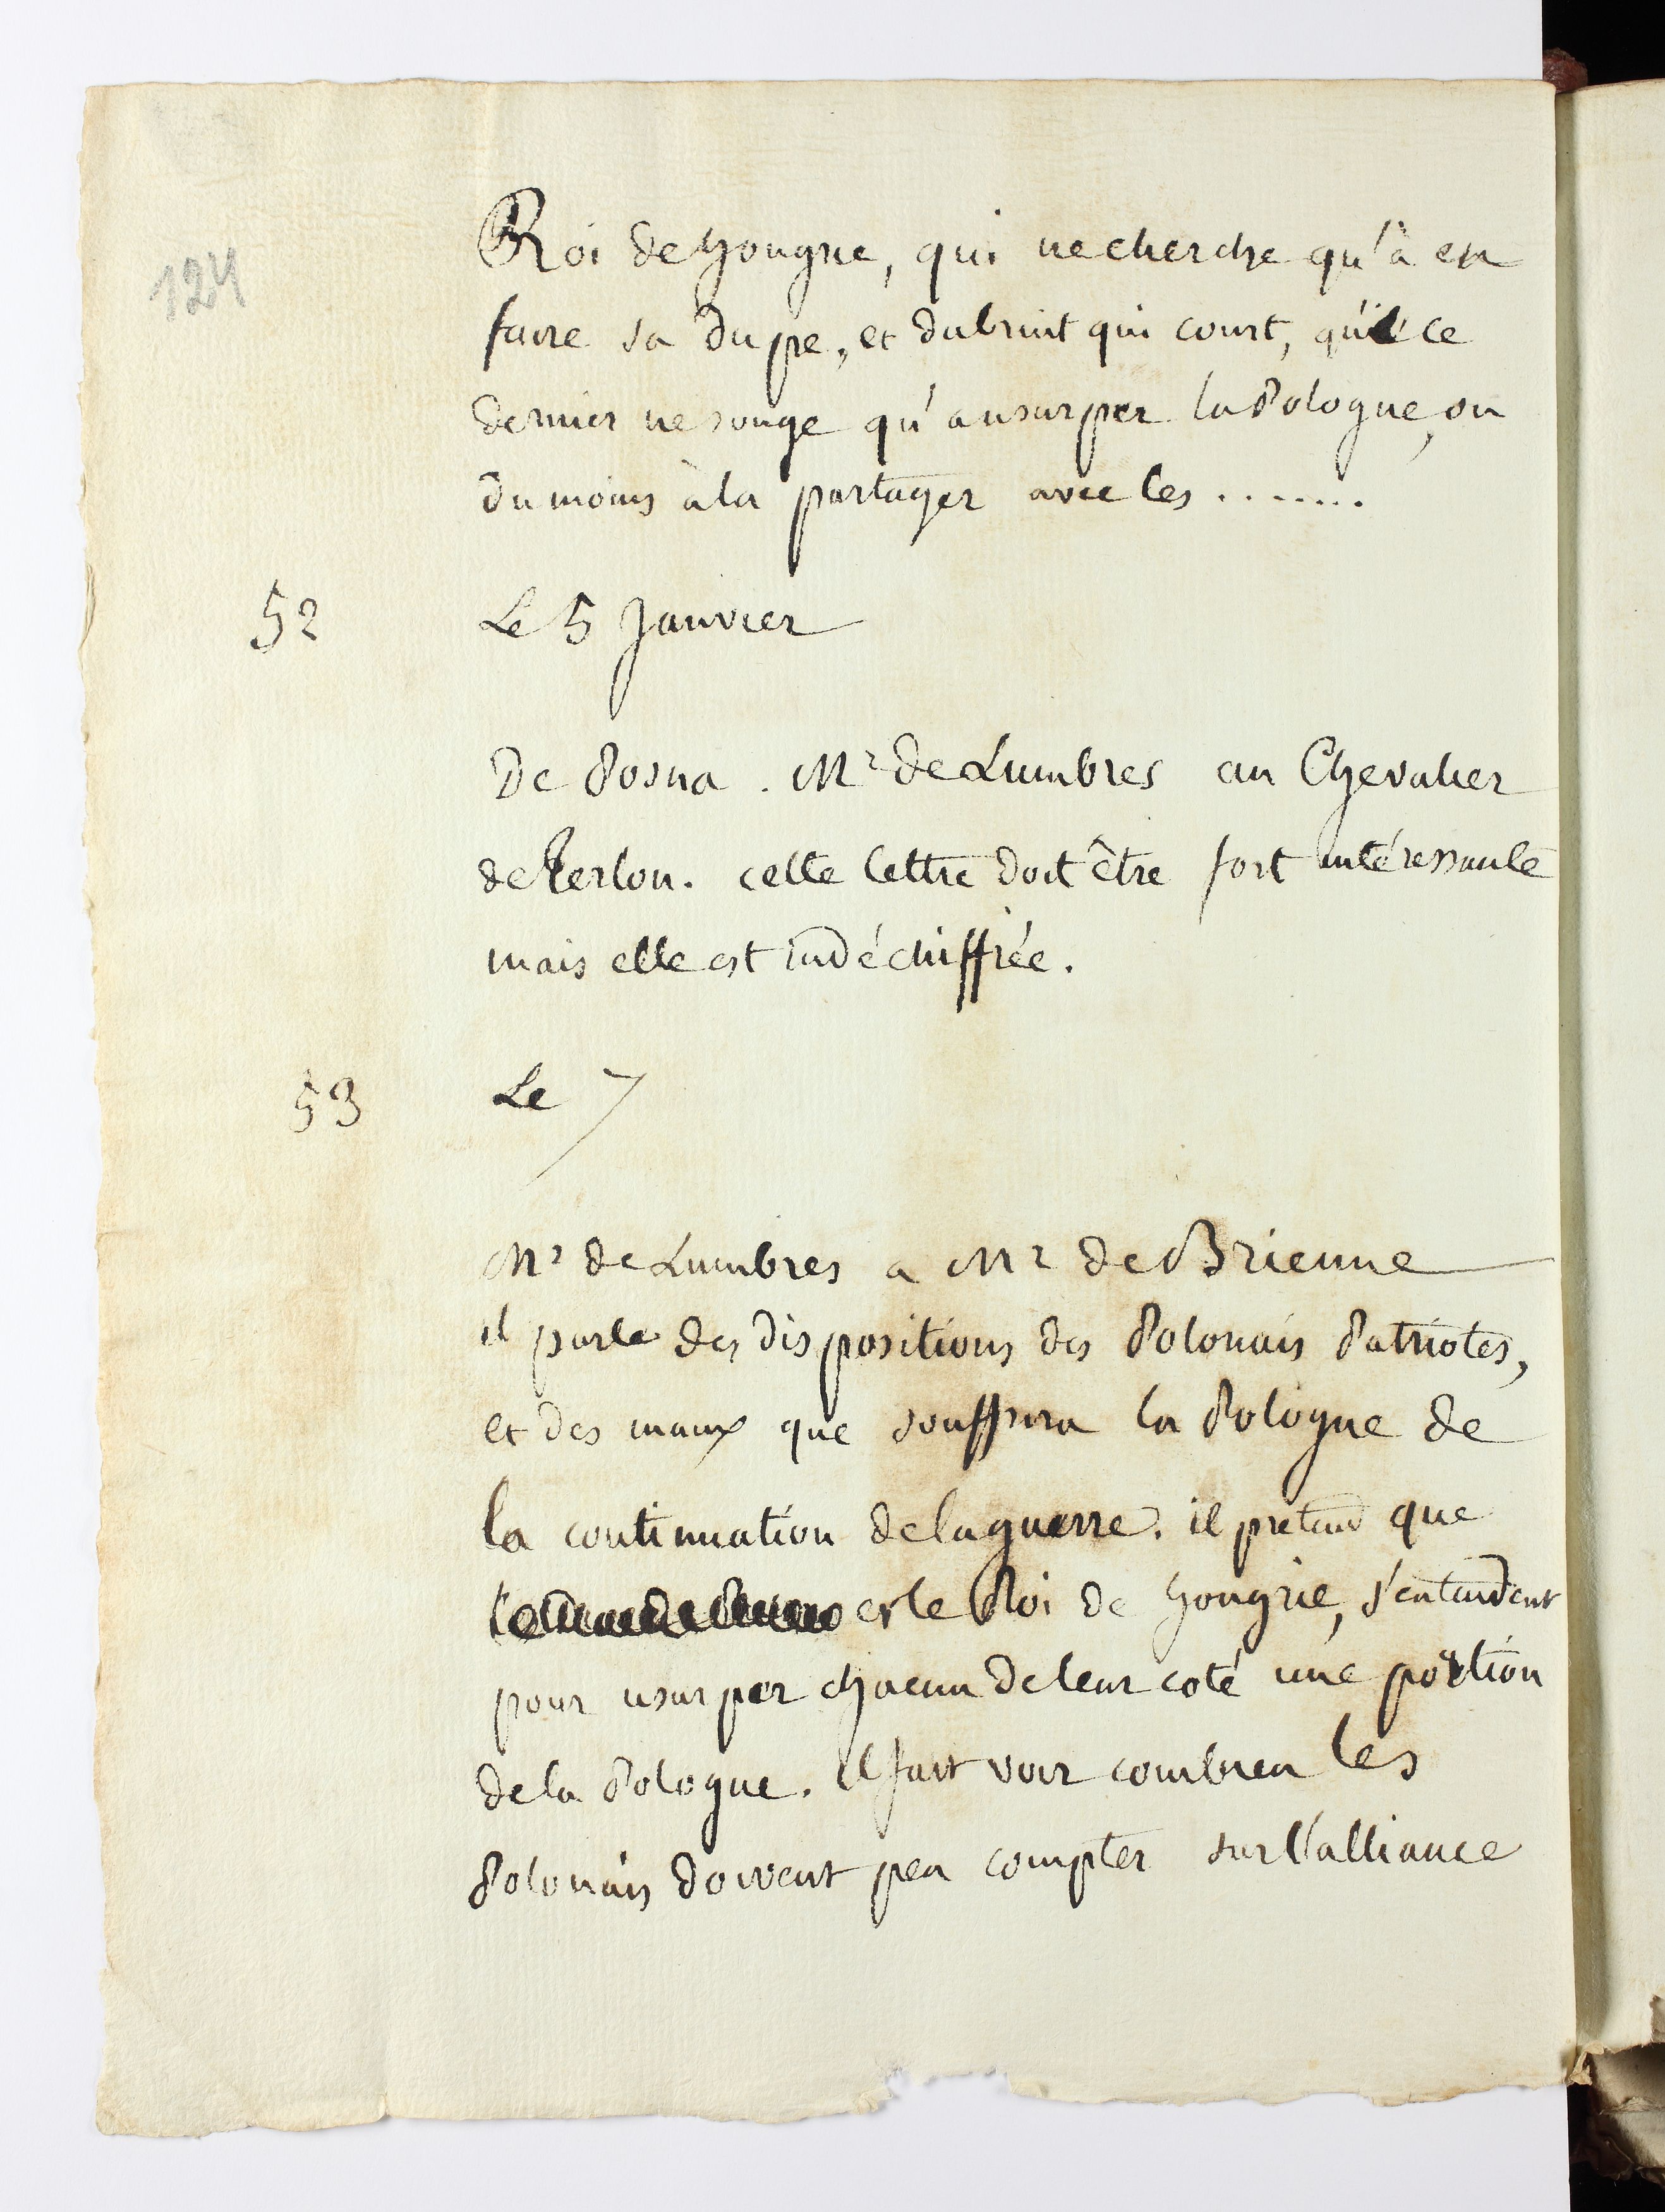 124
Roi de hongrie, qui ne cherche qu'à en
faire sa dupe, et du bruit qui court, que ce
dernier ne songe qu'a usurper la Pologne, ou
du moins à la partager avec les ........
52 Le 5 Janvier
De Posna. Mr de Lumbres au Chevalier
de Terlon. cette lettre doit être fort intéressante
mais elle est indéchiffrée.
53 Le 7
Mr de Lumbres a Mr de Brienne
il parle des dispositions des Polonais Patriotes,
et des maux que souffrira la Pologne de
la continuation de la guerre. il pretend que
et le Roi de hongrie, s'entendent
pour usurper chacun de leur coté une portion
de la Pologne. Il fait voir combien les
Polonais doivent peu compter sur l'alliance